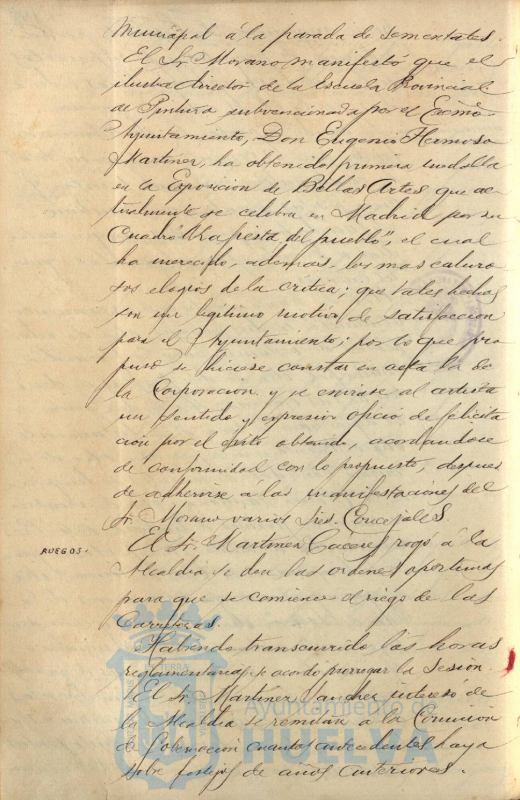 Municipal á la parada de sementales.
El Sr. Morano manifestó que el
ilustre director de la Escuela Provincial
de Pintura subvencionada por el Excmo
Ayuntamiento, Don Eugenio Hermoso
Martinez, ha obtenido primera medalla
en la Exposicion de Bellas Artes que ac-
tualmente se celebra en Madrid por su
Cuadro "La fiesta del pueblo", el cual
ha merecido, ademas, los mas caluro-
sos elogios de la critica; que tales hechos
son un legitimo motivo de satisfaccion
para el Ayuntamiento; por lo que pro-
puso se hiciese constar en acta la de
la Corporacion y se enviase al artista
un sentido y expresivo oficio de felicita-
ción por el exito obtenido, acordandose
de conformidad con lo propuesto, despues
de adherirse á las manifestaciones del
Sr. Morano varios Sres. Concejales.
RUEGOS.
El Sr. Martinez Caceres rogó á la
Alcaldia se den las ordenes oportunas
para que se comience el riego de las
Carreteras.
Habiendo transcurrido las horas
reglamentarias, se acordó prorrogar la sesión.
El Sr. Martinez Sanchez interesó de
la Alcaldia se remitan a la Comision
de Gobernacion cuantos antecedentes haya
sobre festejos de años anteriores.
Ayuntamiento de
HUELVA